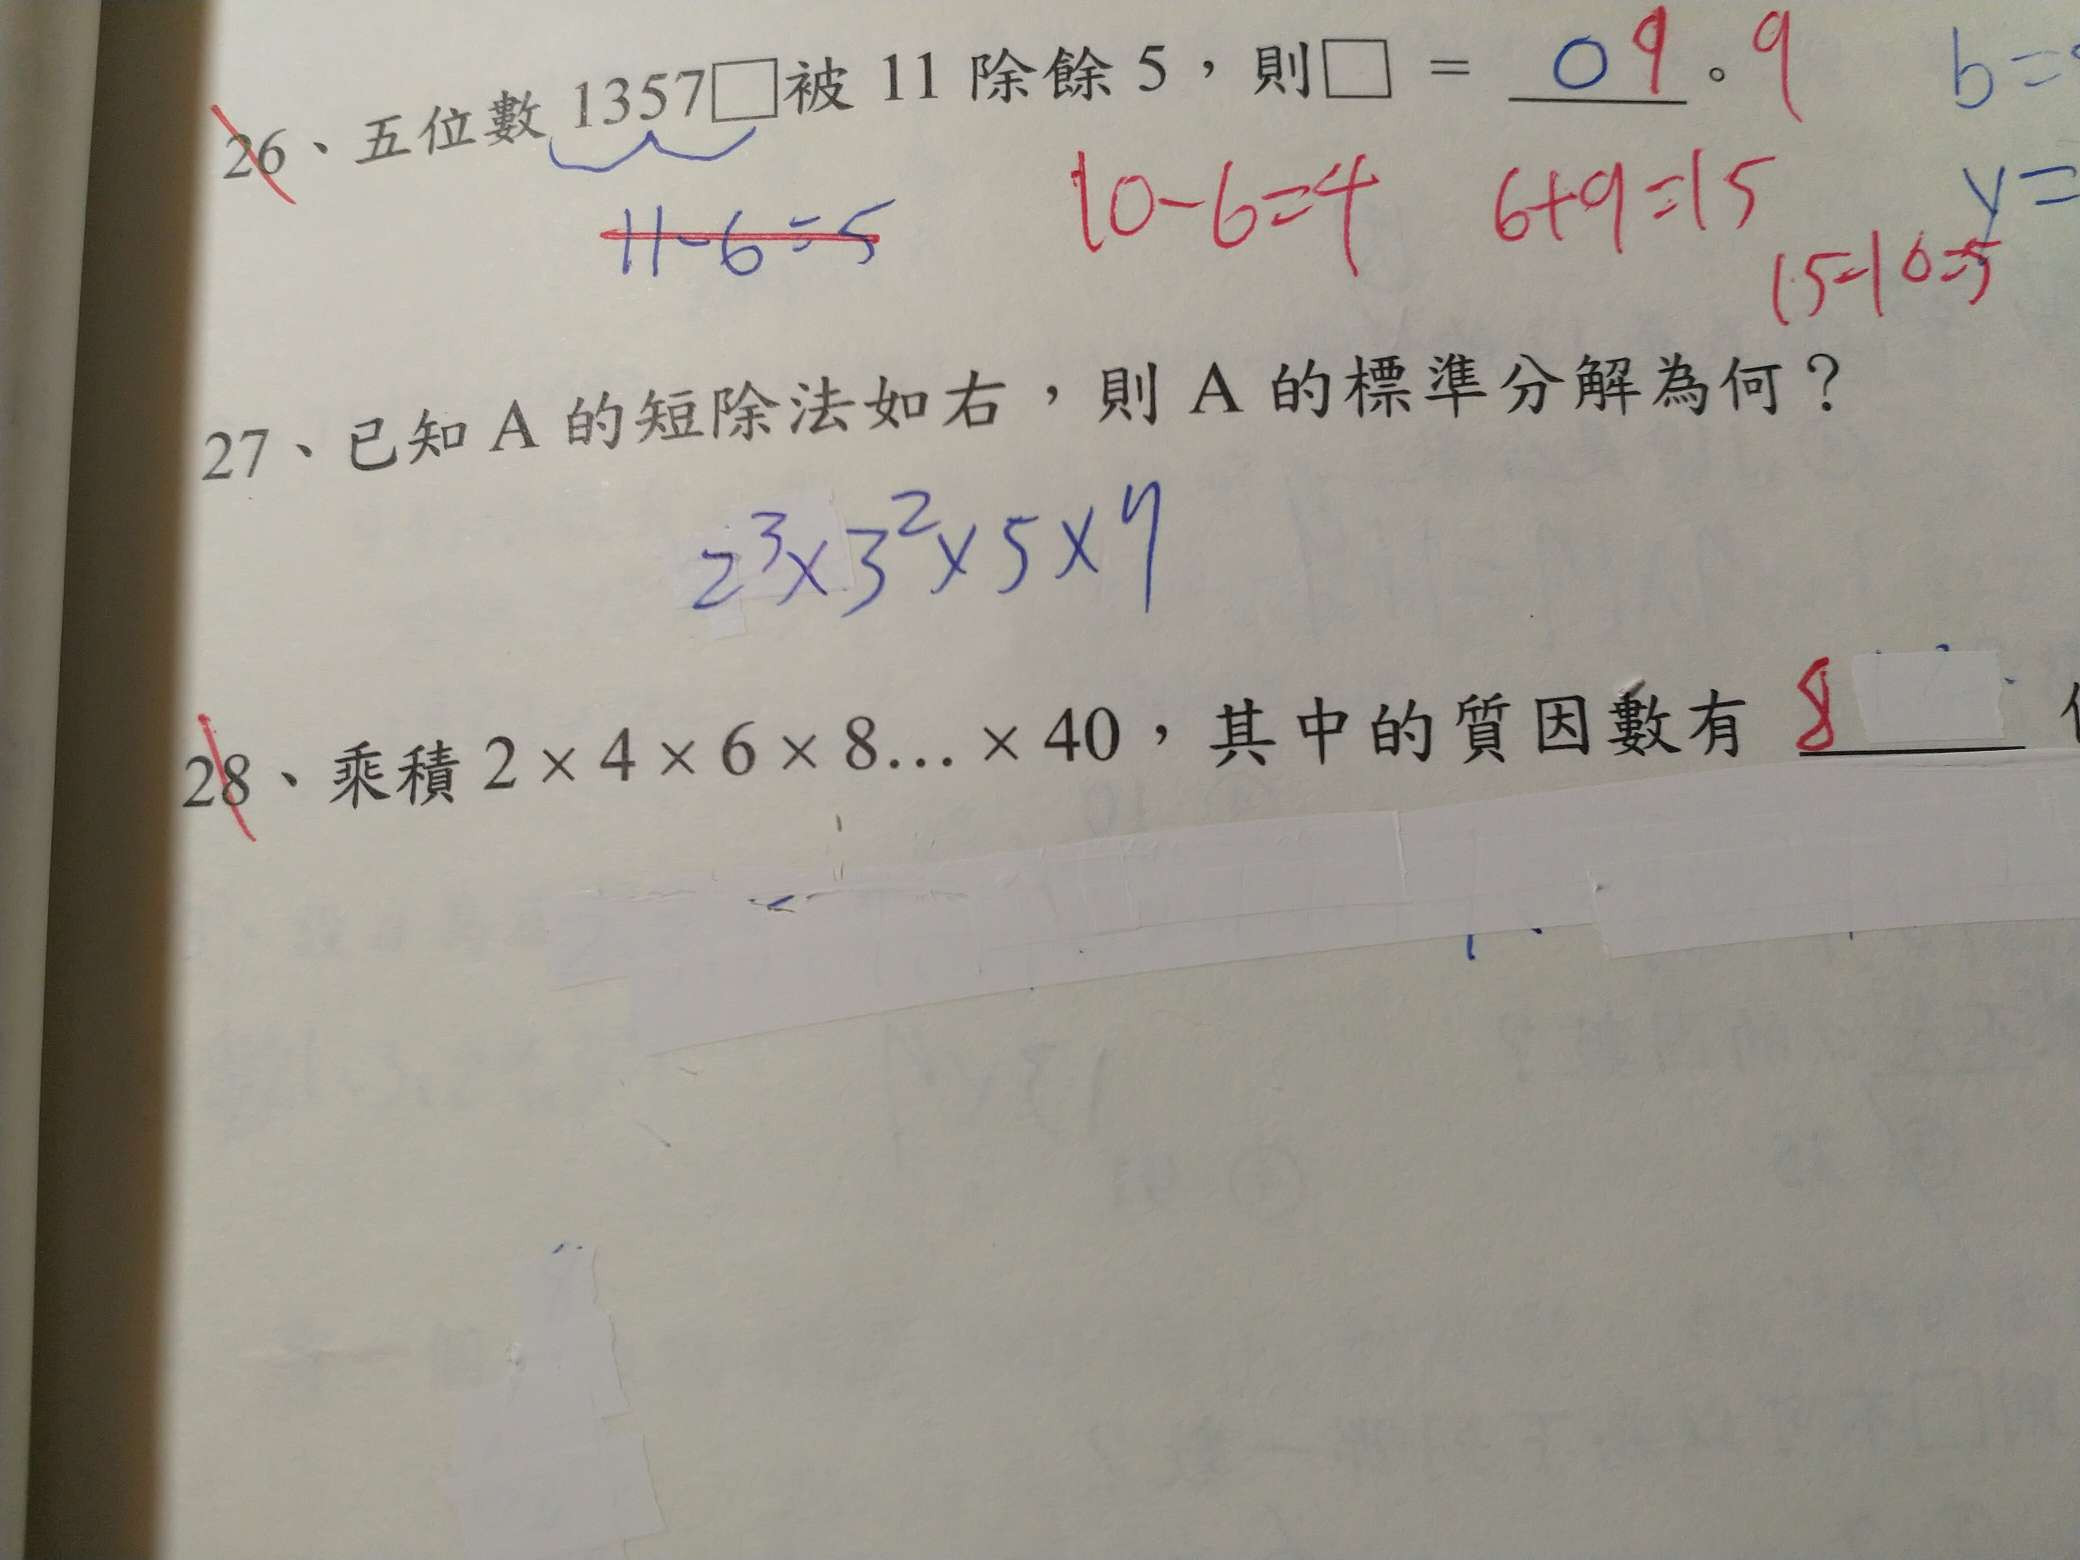 26、五位數 1357□被 11 除餘 5，則□ = 0 9。9
b=
11-6=5 10-6=4 6+9=15 y=
15-10=5
27、已知 A 的短除法如右，則 A 的標準分解為何？
2³×3²×5×7
28、乘積 2 × 4 × 6 × 8... × 40，其中的質因數有 8